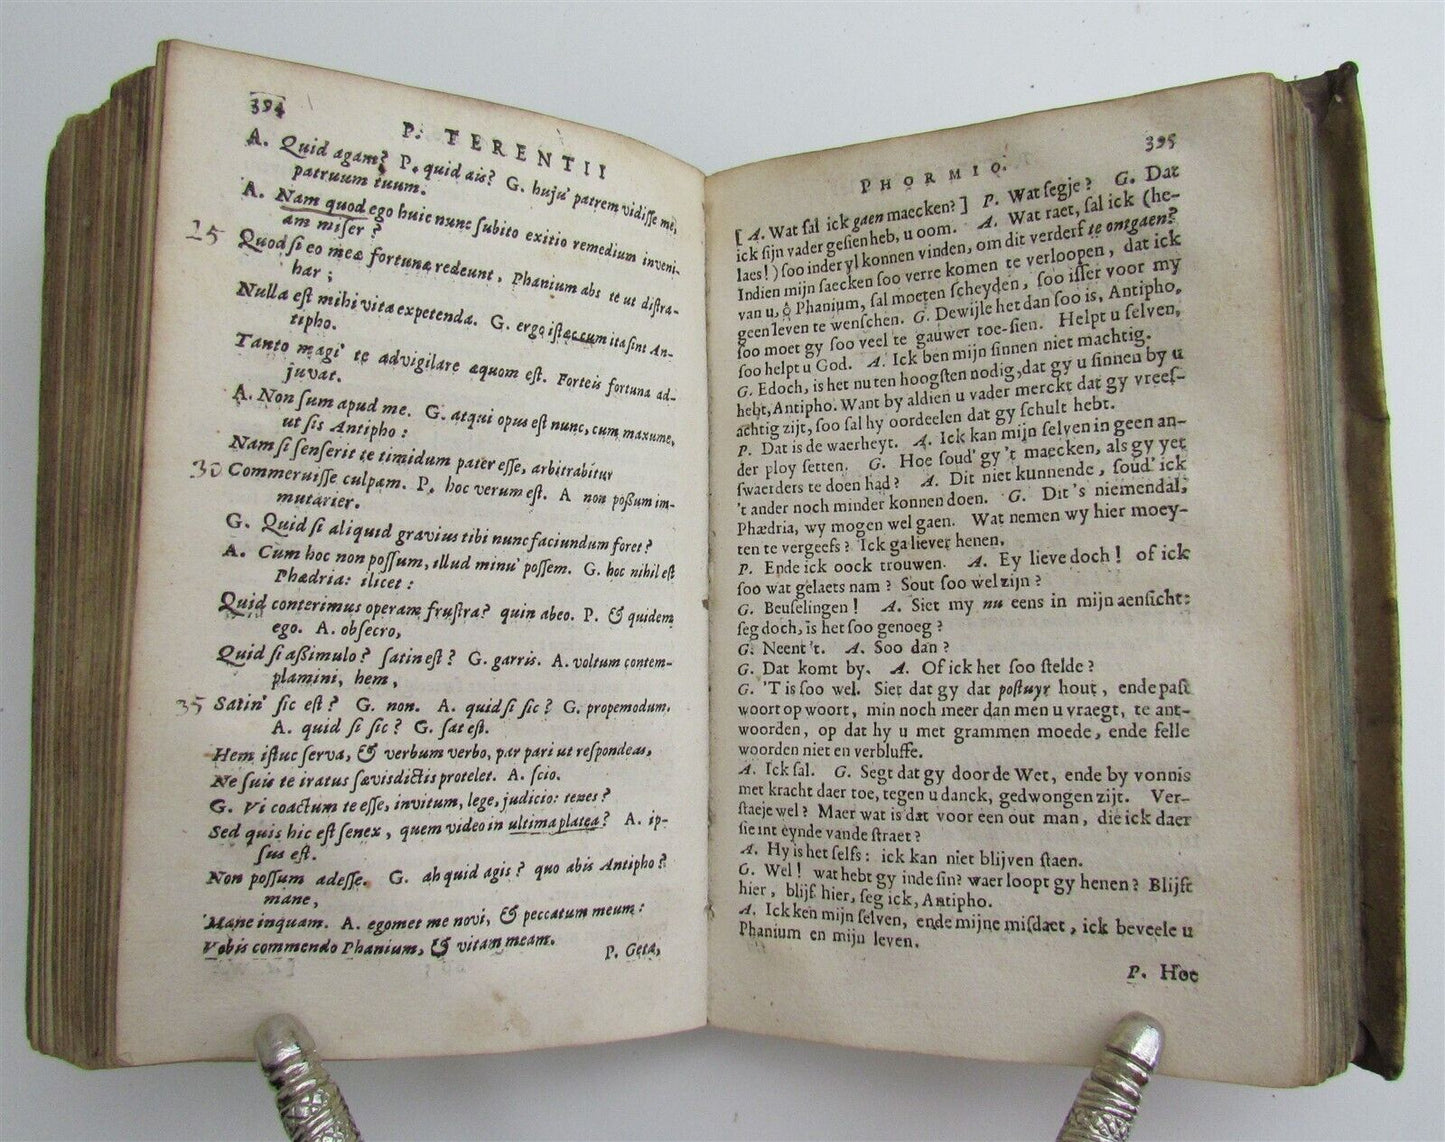 394
P. TERENTII
A. Quid agam? P. quid ais? G. huju' patrem vidisse me,
patruum tuum.
A. Nam quod ego huic nunc subito exitio remedium inveni-
am miser?
25 Quod si eo meæ fortunæ redeunt, Phanium abs te ut distra-
har;
Nulla est mihi vita expetenda. G. ergo istæc cum ita sint An-
tipho.
Tanto magi' te advigilare æquom est. Forteis fortuna ad-
juvat.
A. Non sum apud me. G. atqui opus est nunc, cum maxume,
ut sis Antipho:
Nam si senserit te timidum pater esse, arbitrabitur
30 Commeruisse culpam. P. hoc verum est. A non possum im-
mutarier.
G. Quid si aliquid gravius tibi nunc faciundum foret?
A. Cum hoc non possum, illud minu' possem. G. hoc nihil est
Phædria: ilicet:
Quid conterimus operam frustra? quin abeo. P. & quidem
ego. A. obsecro,
Quid si assimulo? satin est? G. garris. A. voltum contem-
plamini, hem,
35 Satin' sic est? G. non. A. quid si sic? G. propemodum.
A. quid si sic? G. sat est.
Hem istuc serva, & verbum verbo, par pari ut respondeas,
Ne suis te iratus sævisdictis protelet. A. scio.
G. Vi coactum te esse, invitum, lege, judicio: tenes?
Sed quis hic est senex, quem video in ultima platea? A. ip-
sus est.
Non possum adesse. G. ah quid agis? quo abis Antipho?
mane,
Mane inquam. A. egomet me novi, & peccatum meum:
Vobis commendo Phanium, & vitam meam.
P. Geta,
395
PHORMIO.
[A. Wat sal ick gaen maecken?] P. Wat segje? G. Dat
ick sijn vader gesien heb, u oom. A. Wat raet, sal ick (he-
laes!) soo inder yl konnen vinden, om dit verderf te ontgaen?
Indien mijn saecken soo verre komen te verloopen, dat ick
van u, ô Phanium, sal moeten scheyden, soo isser voor my
geen leven te wenschen. G. Dewijle het dan soo is, Antipho,
soo moet gy soo veel te gauwer toe-sien. Helpt u selven,
soo helpt u God. A. Ick ben mijn sinnen niet machtig.
G. Edoch, is het nu ten hoogsten nodig, dat gy u sinnen by u
hebt, Antipho. Want by aldien u vader merckt dat gy vrees-
achtig zijt, soo sal hy oordeelen dat gy schult hebt.
P. Dat is de waerheyt. A. Ick kan mijn selven in geen an-
der ploy setten. G. Hoe soud' gy 't maecken, als gy yet
swaerders te doen had? A. Dit niet kunnende, soud' ick
't ander noch minder konnen doen. G. Dit 's niemendal,
Phædria, wy mogen wel gaen. Wat nemen wy hier moey-
ten te vergeefs? Ick ga liever henen.
P. Ende ick oock trouwen. A. Ey lieve doch! of ick
soo wat gelaets nam? Sout soo wel zijn?
G. Beuselingen! A. Siet my nu eens in mijn aensicht:
seg doch, is het soo genoeg?
G. Neent 't. A. Soo dan?
G. Dat komt by. A. Of ick het soo stelde?
G. 'T is soo wel. Siet dat gy dat postuyr hout, ende past
woort op woort, min noch meer dan men u vraegt, te ant-
woorden, op dat hy u met grammen moede, ende felle
woorden niet en verbluffe.
A. Ick sal. G. Segt dat gy door de Wet, ende by vonnis
met kracht daer toe, tegen u danck, gedwongen zijt. Ver-
staeje wel? Maer wat is dat voor een out man, die ick daer
sie int eynde vande straet?
A. Hy is het selfs: ick kan niet blijven staen.
G. Wel! wat hebt gy inde sin? waer loopt gy henen? Blijft
hier, blijf hier, seg ick, Antipho.
A. Ick ken mijn selven, ende mijne misdaet, ick beveele u
Phanium en mijn leven.
P. Hoe